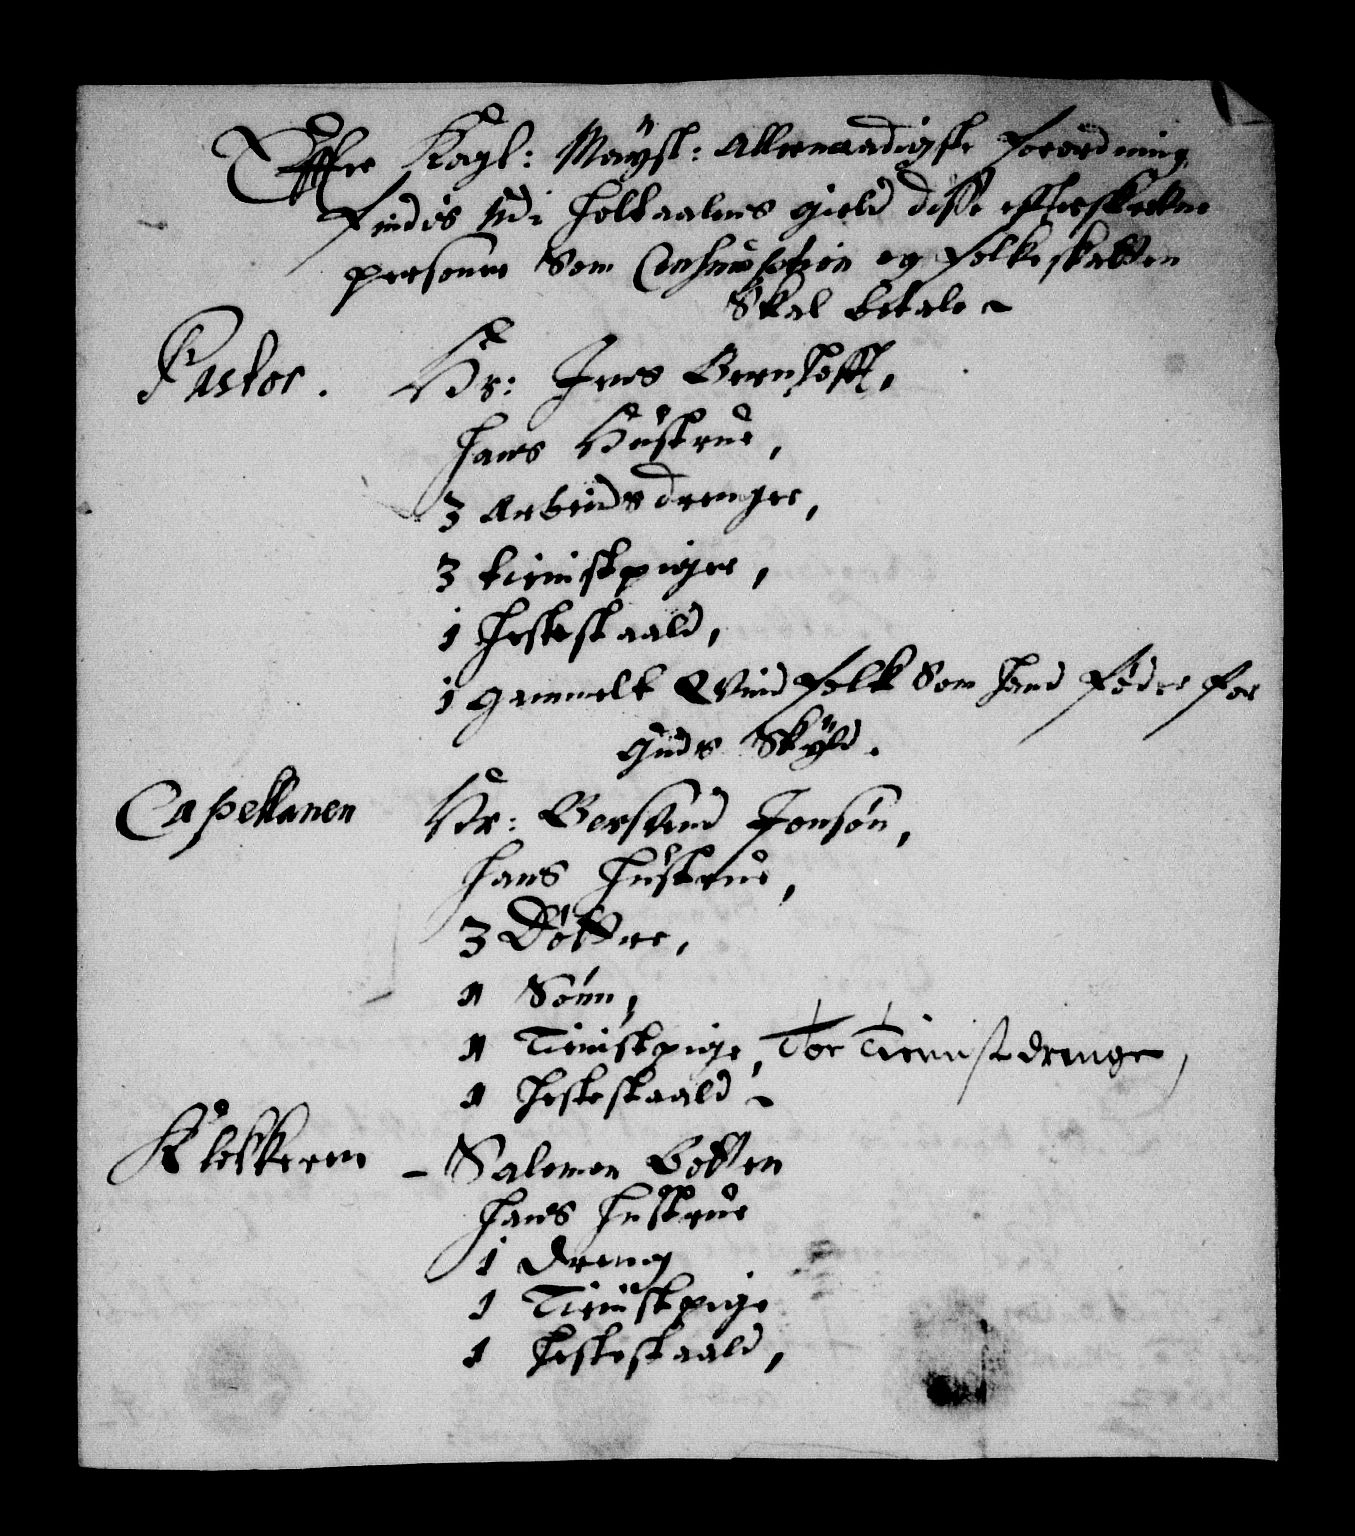 Effter Kongl: Mayst: Allernaadigste Forordning
Findis Udi Holtaalens gield disse effterskrefne
personer Som Consumption og Folkeskatten
Skal betale ~
Pastor. Hr: Jens Bernhofft,
Hans Hustrue,
3 Arbeids drenger,
3 tienistpiger,
1 Hesteskaald,
1 gammelt Qvindfolk Som Hand Føder for
Guds Skyld.
Capellanen Hr: Bersvend Jonsøn,
Hans Hustrue,
3 Døttre,
1 Sønn,
1 Tienistpige, Toe Tienistdrenge,
1 Hesteskaald ~
Klokkeren - Salomon
Hans Hustrue
1 Dreng
1 Tienistpige
1 Hesteskaald,